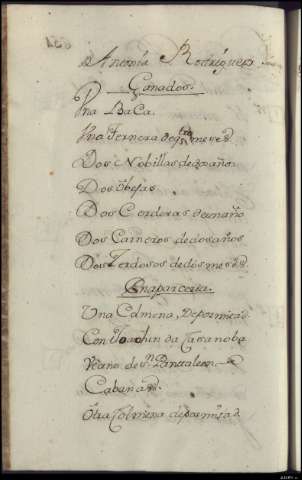 Antonia Rodriguez
Ganados.
Vna BaCa.
Vna Ternera de q.tro meses
Dos Nobillas de a año
Dos obejas
Dos Corderas de un año
Dos Carneros de dos años
Dos de dos meses
En aparceria.
Una Colmena, De por mitad
Con Joachin da Casanoba
Vecino de S.n Panttaleon
Cabanas.
Otra Colmena de por mitad